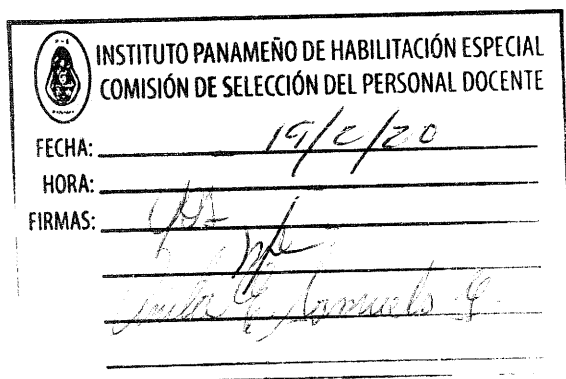 INSTITUTO PANAMEÑO DE HABILITACIÓN ESPECIAL
COMISIÓN DE SELECCIÓN DEL PERSONAL DOCENTE
FECHA: 19/2/20
HORA:
FIRMAS:
Samuels G.